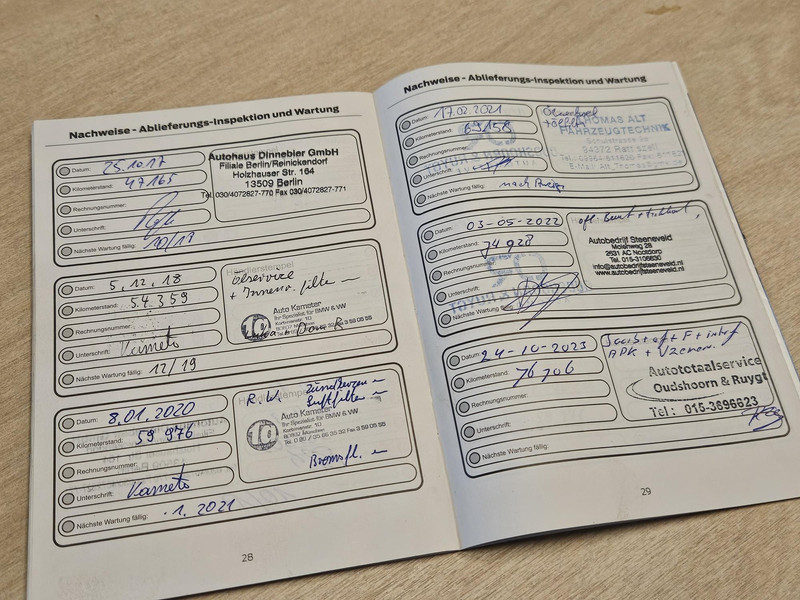 Nachweise - Ablieferungs-Inspektion und Wartung
Datum: 25.10.17
Kilometerstand: 47165
Rechnungsnummer:
Unterschrift:
Nächste Wartung fällig: 10/19
Autohaus Dinnebier GmbH
Filiale Berlin/Reinickendorf
Holzhauser Str. 164
13509 Berlin
Tel: 030/4072827-770 Fax 030/4072827-771
Datum: 5.12.18
Kilometerstand: 54.359
Rechnungsnummer:
Unterschrift: Kameto
Nächste Wartung fällig: 12/19
Händlerstempel
Ölservice
+ Innenr. filter
Auto Kameter
Ihr Spezialist für BMW & VW
Datum: 8.01.2020
Kilometerstand: 59 976
Rechnungsnummer:
Unterschrift: Kameto
Nächste Wartung fällig: .1.2021
R.W. Zündkerzen
Luftfilter
Auto Kameter
Ihr Spezialist für BMW & VW
80807 München
Bremsfl.
28
Nachweise - Ablieferungs-Inspektion und Wartung
Datum: 17.02.2021
Kilometerstand: 69158
Rechnungsnummer:
Unterschrift:
Nächste Wartung fällig: nach Anzeige
THOMAS ALT
FAHRZEUGTECHNIK
94372 Rattiszell
Datum: 03-05-2022
Kilometerstand: 74928
Rechnungsnummer:
Unterschrift:
Nächste Wartung fällig:
Autobedrijf Steeneveld
Molenweg 28
2631 AC Nootdorp
Tel. 015-3106630
info@autobedrijfsteeneveld.nl
www.autobedrijfsteeneveld.nl
Datum: 24-10-2023
Kilometerstand: 76706
Rechnungsnummer:
Unterschrift:
Nächste Wartung fällig:
APK +
Autototaalservice
Oudshoorn & Ruygt
Tel: 015-3696623
29